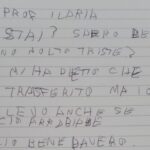 PROF ILARIA
STAI? SPERO BE
NO MOLTO TRISTE?
MI HA DETTO CHE
TRASFERITO MA IO
ANCHE SE
ARRABBIATE
BENE DAVERO